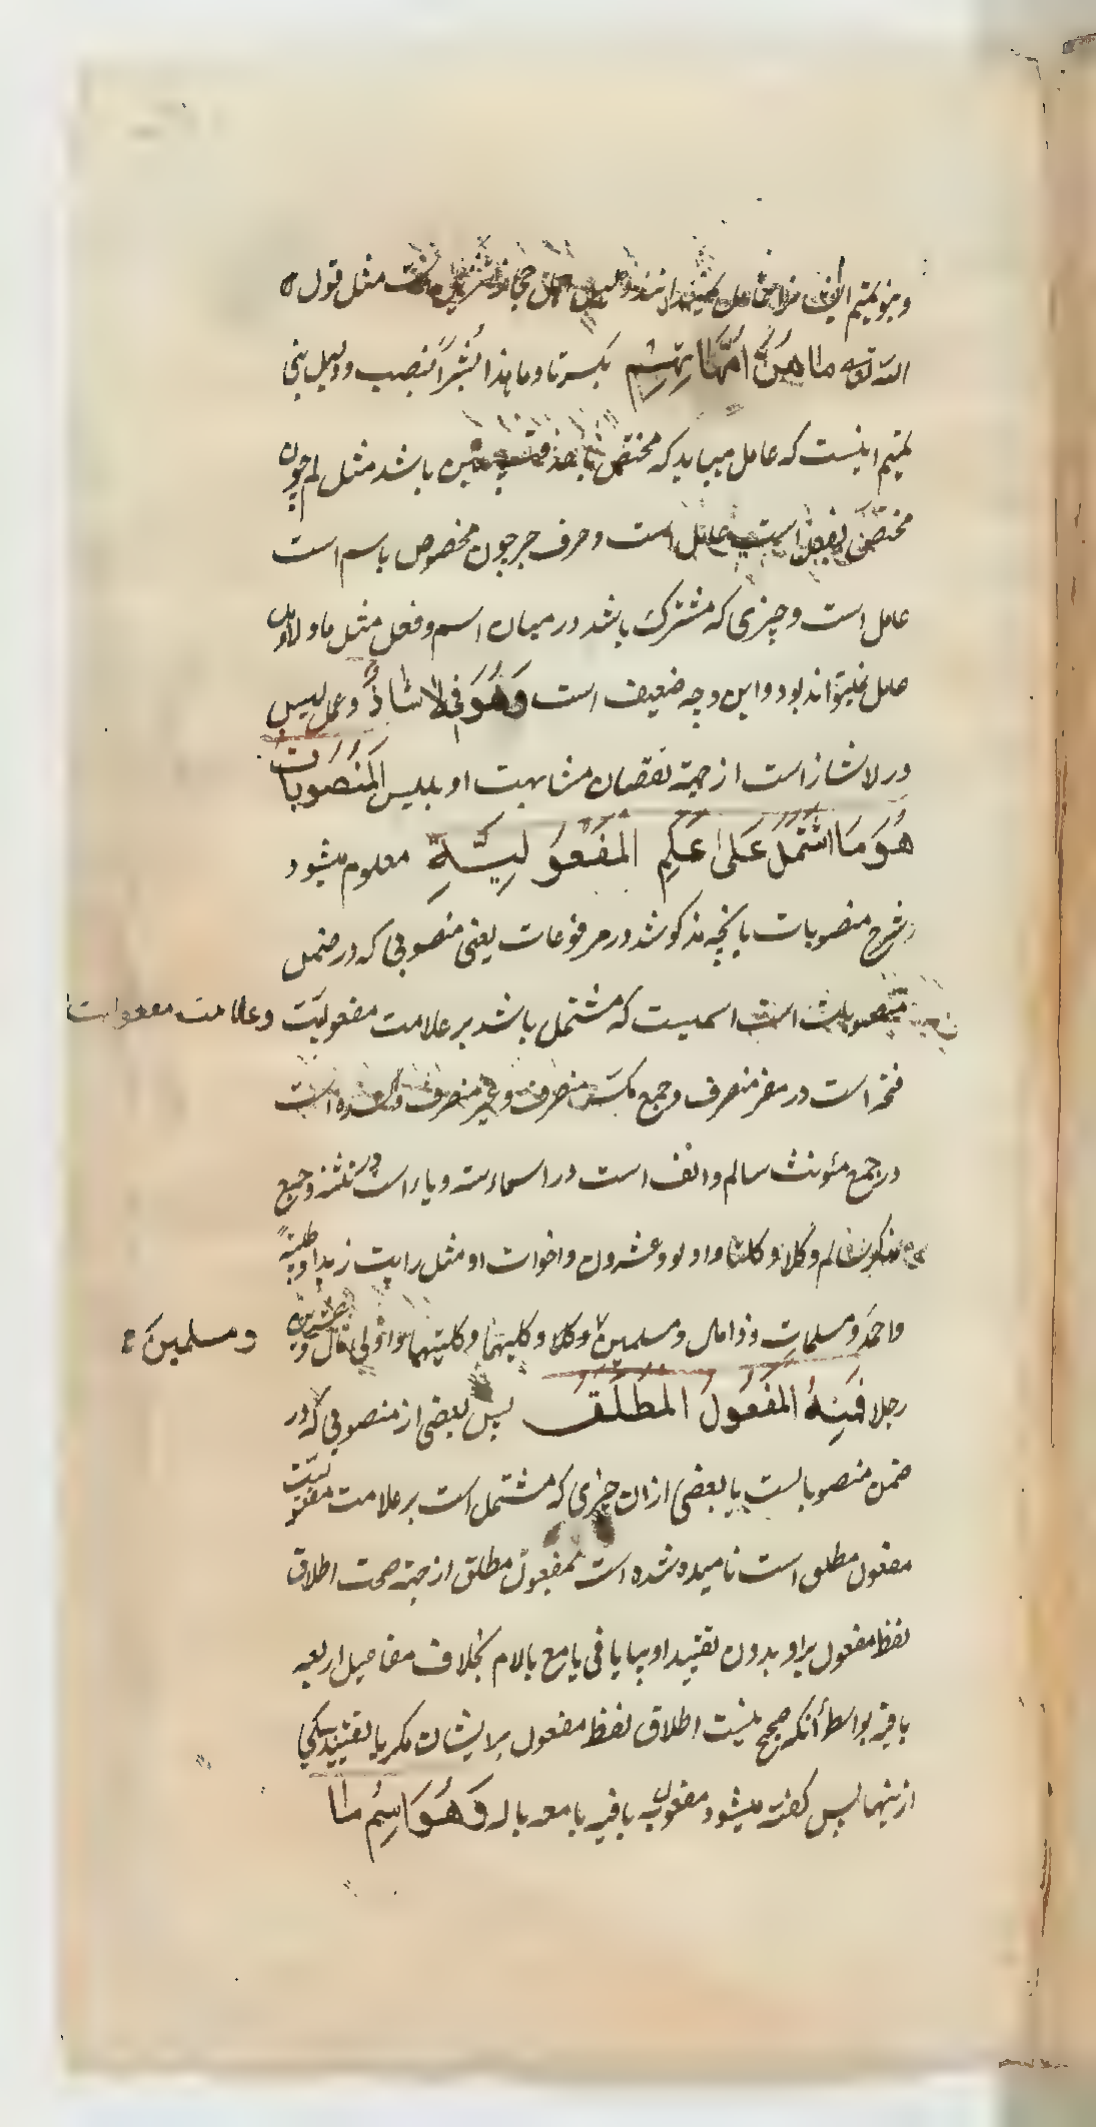 و بنو تمیم این را عامل نمیدانند و دلیل اهل حجاز مثل قول
الله تعالی ما هُنَّ اُمَّهَاتِهِم بکسر تا و ما هذا بَشَراً بنصب و دلیل بنی
تمیم اینست که عامل میباید که مختص باشد مثل لم چون
مختص بفعل است عامل است و حرف جر چون مخصوص باسم است
عامل است و چیزی که مشترک باشد در میان اسم و فعل مثل ما و لا
عامل نمیتواند بود و این وجه ضعیف است وَهُوَ فِی لا شاذٌّ و عمل لیس
در لا شاز است از جهة نقصان مشابهت او بلیس اَلمَنصُوبَاتُ
هُوَ مَا اشْتَمَلَ عَلَی عَلَمِ المَفْعُولِیَّةِ معلوم میشود
شرح منصوبات بانچه مذکور شد در مرفوعات یعنی منصوبی که در ضمن
منصوبات است اسمیست که مشتمل باشد بر علامت مفعولیّت و علامت مفعولیت
فتحه است در مفرد منصرف و جمع مکسّر منصرف و غیر منصرف و کسره است
در جمع مؤنث سالم و الف است در اسماء سته و یاء است در تثنیه و جمع
مذکور سالم و کلا و کلتا و اولو و عشرون و اخوات او مثل رایت زیداً و طلبةً
و احمدَ و مسلماتٍ و ذا مال و مسلمینِ و کلا و کلیهما و کلتیهما و اولی مال و عشرین
و مسلمینَ
رجلا فَمِنهُ المَفعُولُ المُطلَقُ پس بعضی از منصوبی که در
ضمن منصوباتست یا بعضی از ان چیزی که مشتمل است بر علامت مفعولیّت
مفعول مطلق است نامیده شده است بمفعول مطلق از جهة صحت اطلاق
لفظ مفعول بر او بدون تقیید او ببا یا فی یا مع یا لام بخلاف مفاعیل اربعه
باقیه بواسطه آنکه صحیح نیست اطلاق لفظ مفعول بر ایشان مگر با تقیید بیکی
از ینها پس گفته میشود مفعول به یا فیه یا معه یا له وَهُوَ اسِمُ ما